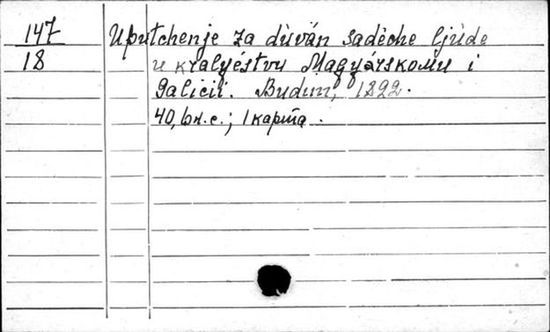 147 Uputchenje za dùván sadèche ljùde
18 u kralyéstvu Magyárskomu i
Galicii. Budim, 1822.
40, br. c.; 1 карта.